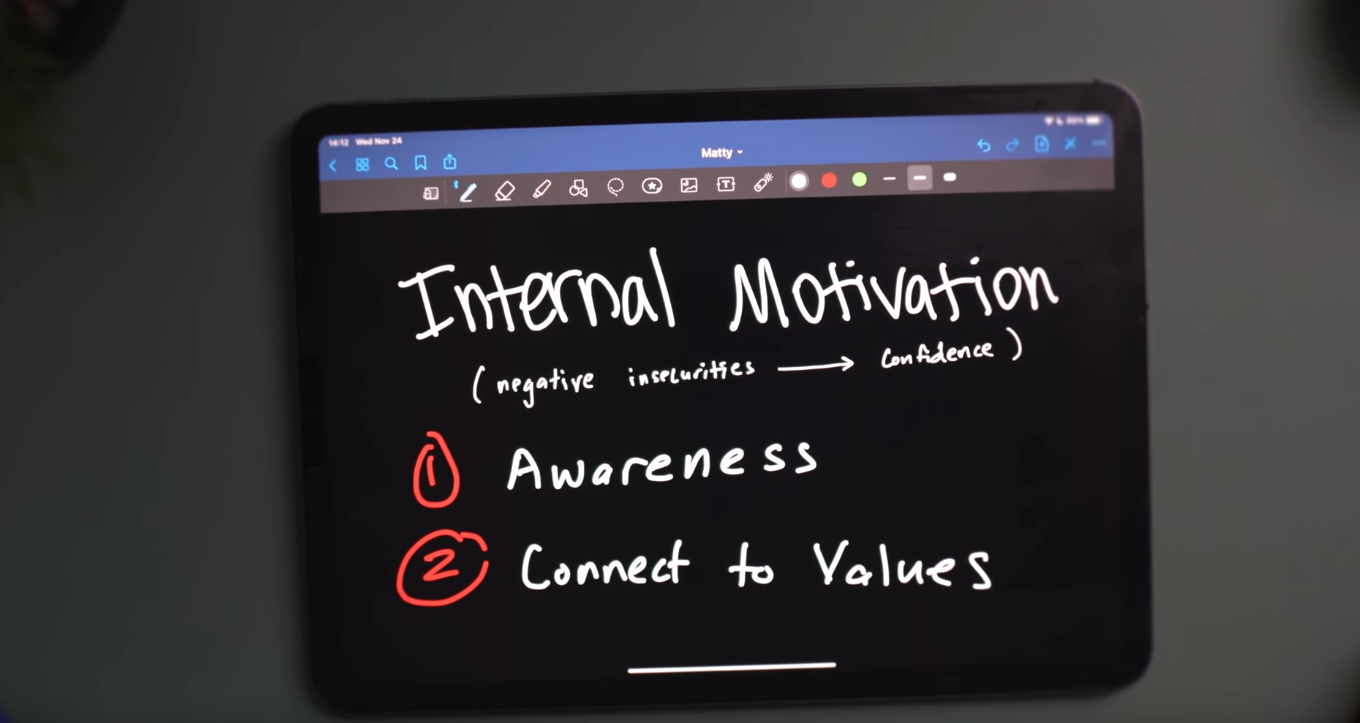 14:12 Wed Nov 24
Matty
Internal Motivation
(negative insecurities → confidence)
1 Awareness
2 Connect to Values